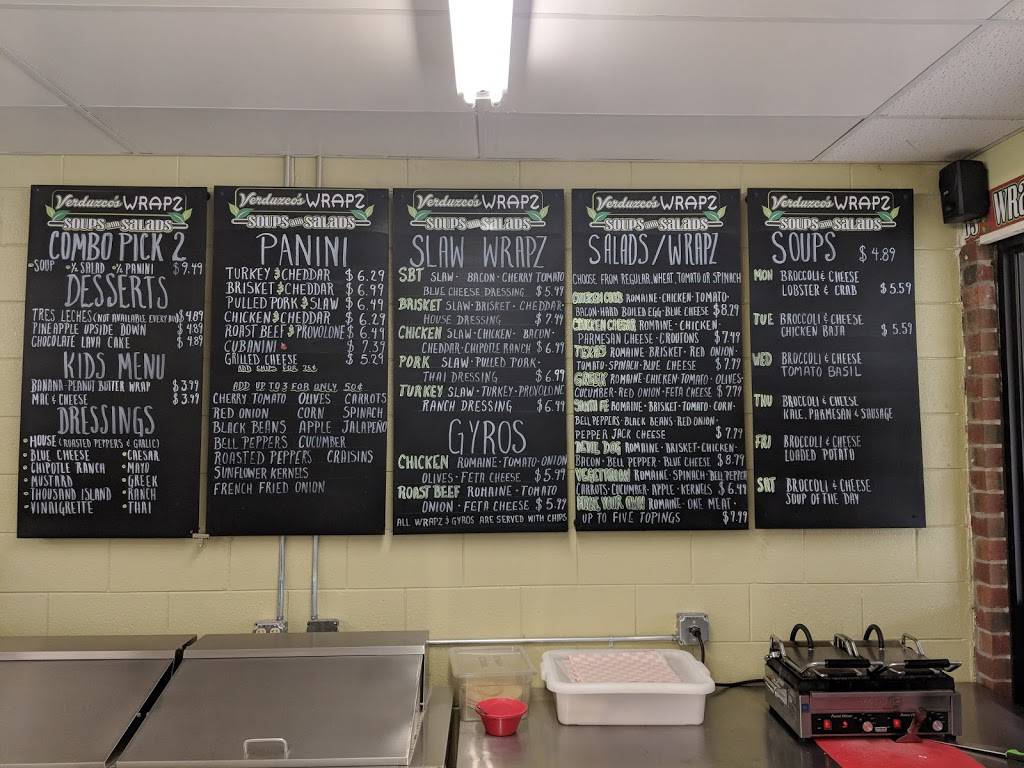 Verduzco's WRAPZ
SOUPS and SALADS
COMBO PICK 2
•SOUP •½ SALAD •½ PANINI $9.49
DESSERTS
TRES LECHES (NOT AVAILABLE EVERY DAY) $4.89
PINEAPPLE UPSIDE DOWN $4.89
CHOCOLATE LAVA CAKE $4.89
KIDS MENU
BANANA-PEANUT BUTTER WRAP $3.99
MAC & CHEESE $3.99
DRESSINGS
•HOUSE (ROASTED PEPPERS & GARLIC)
•BLUE CHEESE •CAESAR
•CHIPOTLE RANCH •MAYO
•MUSTARD •GREEK
•THOUSAND ISLAND •RANCH
•VINAIGRETTE •THAI
Verduzco's WRAPZ
SOUPS and SALADS
PANINI
TURKEY & CHEDDAR $6.29
BRISKET & CHEDDAR $6.99
PULLED PORK & SLAW $6.49
CHICKEN & CHEDDAR $6.29
ROAST BEEF & PROVOLONE $6.49
CUBANINI $7.39
GRILLED CHEESE $5.29
ADD CHIPS FOR 75¢
ADD UP TO 3 FOR ONLY 50¢
CHERRY TOMATO OLIVES CARROTS
RED ONION CORN SPINACH
BLACK BEANS APPLE JALAPEÑO
BELL PEPPERS CUCUMBER
ROASTED PEPPERS CRAISINS
SUNFLOWER KERNELS
FRENCH FRIED ONION
Verduzco's WRAPZ
SOUPS and SALADS
SLAW WRAPZ
SBT SLAW • BACON • CHERRY TOMATO
BLUE CHEESE DRESSING $5.49
BRISKET SLAW • BRISKET • CHEDDAR •
HOUSE DRESSING $7.49
CHICKEN SLAW • CHICKEN • BACON •
CHEDDAR • CHIPOTLE RANCH $6.99
PORK SLAW • PULLED PORK
THAI DRESSING $6.99
TURKEY SLAW • TURKEY • PROVOLONE
RANCH DRESSING $6.99
GYROS
CHICKEN ROMAINE • TOMATO • ONION
OLIVES • FETA CHEESE $5.99
ROAST BEEF ROMAINE • TOMATO
ONION • FETA CHEESE $5.99
ALL WRAPZ & GYROS ARE SERVED WITH CHIPS
Verduzco's WRAPZ
SOUPS and SALADS
SALADS/WRAPZ
CHOOSE FROM REGULAR, WHEAT, TOMATO OR SPINACH
CHICKEN COBB ROMAINE • CHICKEN • TOMATO •
BACON • HARD BOILED EGG • BLUE CHEESE $8.29
CHICKEN CAESAR ROMAINE • CHICKEN •
PARMESAN CHEESE • CROUTONS $7.49
TEXAS ROMAINE • BRISKET • RED ONION •
TOMATO • SPINACH • BLUE CHEESE $7.79
GREEK ROMAINE • CHICKEN • TOMATO • OLIVES •
CUCUMBER • RED ONION • FETA CHEESE $7.79
SANTA FE ROMAINE • BRISKET • TOMATO • CORN •
BELL PEPPERS • BLACK BEANS • RED ONION •
PEPPER JACK CHEESE $7.79
DEVIL DOG ROMAINE • BRISKET • CHICKEN •
BACON • BELL PEPPER • BLUE CHEESE $8.79
VEGETARIAN ROMAINE • SPINACH • BELL PEPPER
CARROTS • CUCUMBER • APPLE • KERNELS $6.49
MAKE YOUR OWN ROMAINE • ONE MEAT •
UP TO FIVE TOPINGS $7.99
Verduzco's WRAPZ
SOUPS and SALADS
SOUPS $4.89
MON BROCCOLI & CHEESE
LOBSTER & CRAB $5.59
TUE BROCCOLI & CHEESE
CHICKEN BAJA $5.59
WED BROCCOLI & CHEESE
TOMATO BASIL
THU BROCCOLI & CHEESE
KALE, PARMESAN & SAUSAGE
FRI BROCCOLI & CHEESE
LOADED POTATO
SAT BROCCOLI & CHEESE
SOUP OF THE DAY